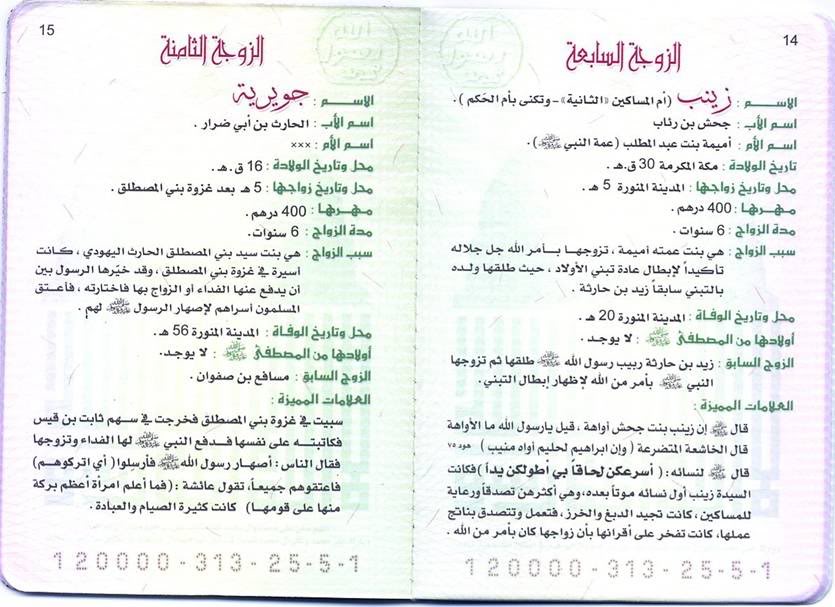 14
الزوجة السابعة
الاسم : زينب (أم المساكين «الثانية» - وتكنى بأم الحَكم ) .
اسم الأب : جحش بن رئاب
اسم الأم : أميمة بنت عبد المطلب (عمة النبي ﷺ).
تاريخ الولادة : مكة المكرمة 30 ق.هـ .
محل وتاريخ زواجها : المدينة المنورة 5 هـ .
مهرها : 400 درهم .
مدة الزواج : 6 سنوات .
سبب الزواج : هي بنت عمته أميمة ، تزوجها بأمر الله جل جلاله
تأكيداً لإبطال عادة تبني الأولاد ، حيث طلقها ولده
بالتبني سابقاً زيد بن حارثة .
محل وتاريخ الوفاة : المدينة المنورة 20 هـ .
أولادها من المصطفى ﷺ : لا يوجد .
الزوج السابق : زيد بن حارثة ربيب رسول الله ﷺ طلقها ثم تزوجها
النبي ﷺ بأمر من الله لإظهار إبطال التبني .
العلامات المميزة :
قال ﷺ إن زينب بنت جحش أواهة ، قيل يارسول الله ما الأواهة
قال الخاشعة المتضرعة ( وإن ابراهيم لحليم أواه منيب ) هود ٧٥
قال ﷺ لنسائه : ( أسرعكن لحاقاً بي أطولكن يداً ) فكانت
السيدة زينب أول نسائه موتاً بعده، وهي أكثرهن تصدقاً ورعاية
للمساكين ، كانت تجيد الدبغ والخرز ، فتعمل وتتصدق بناتج
عملها، كانت تفخر على أقرانها بأن زواجها كان بأمر من الله .
120000-313-25-5-1
15
الزوجة الثامنة
الاسم : جويرية
اسم الأب : الحارث بن أبي ضرار .
اسم الأم : ×××
محل وتاريخ الولادة : 16 ق.هـ .
محل وتاريخ زواجها : 5 هـ بعد غزوة بني المصطلق .
مهرها : 400 درهم .
مدة الزواج : 6 سنوات .
سبب الزواج : هي بنت سيد بني المصطلق الحارث اليهودي ، كانت
أسيرة في غزوة بني المصطلق ، وقد خيّرها الرسول بين
أن يدفع عنها الفداء أو الزواج بها فاختارته ، فأعتق
المسلمون أسراهم لإصهار الرسول ﷺ لهم .
محل وتاريخ الوفاة : المدينة المنورة 56 هـ .
أولادها من المصطفى ﷺ : لا يوجد .
الزوج السابق : مسافع بن صفوان .
العلامات المميزة :
سبيت في غزوة بني المصطلق فخرجت في سهم ثابت بن قيس
فكاتبته على نفسها فدفع النبي ﷺ لها الفداء وتزوجها
فقال الناس : أصهار رسول الله ﷺ فأرسِلوا ( أي اتركوهم )
فاعتقوهم جميعاً، تقول عائشة : ( فما أعلم امرأة أعظم بركة
منها على قومها ) كانت كثيرة الصيام والعبادة .
120000-313-25-5-1